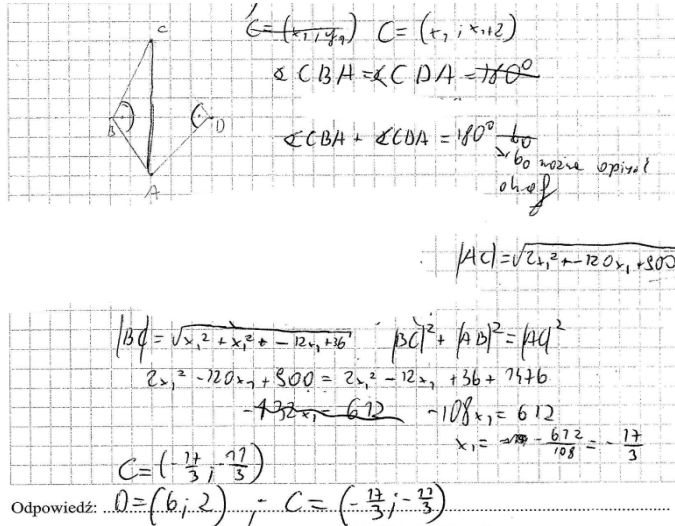 C
B
D
A
C = (x₁ ; y₁) C = (x₁ ; x₁+2)
∢CBA = ∢CDA = 180°
∢CBA + ∢CDA = 180° bo
bo można opisać
okrąg
|AC| = √2x₁² + -120x₁ + 900
|BC| = √x₁² + x₁² + -12x₁ + 36 |BC|² + |AB|² = |AC|²
2x₁² - 120x₁ + 900 = 2x₁² - 12x₁ + 36 + 1476
-132x₁ = 612 -108x₁ = 612
x₁ = -612/108 = -17/3
C = (-17/3 ; -11/3)
Odpowiedź: D = (6 ; 2) ; C = (-17/3 ; -11/3)